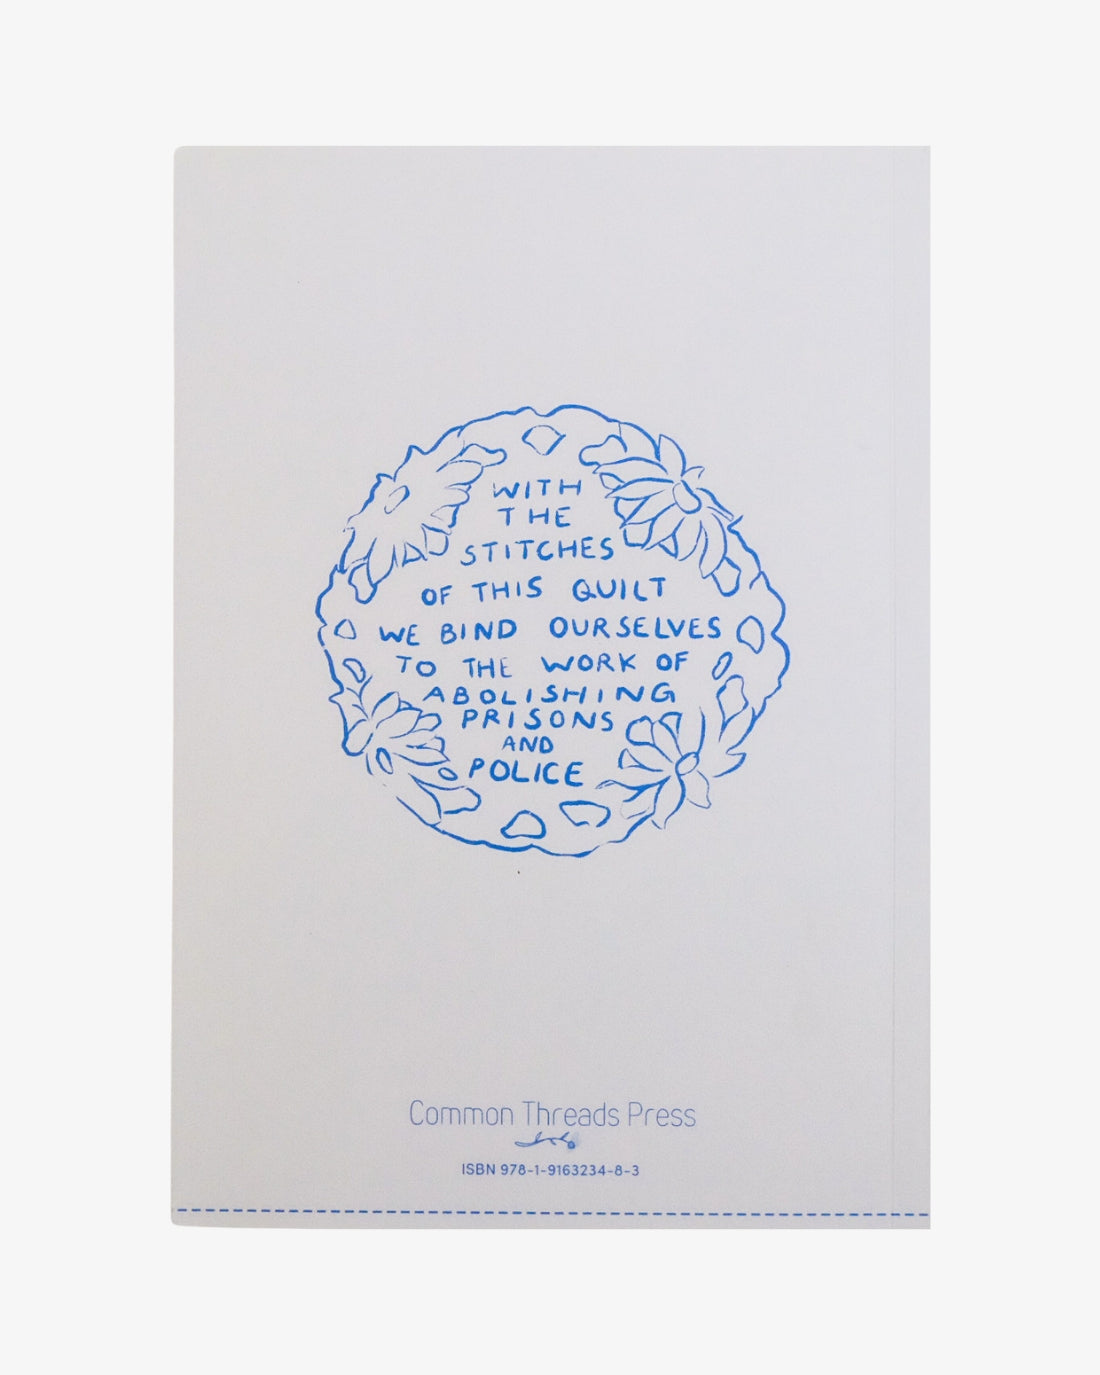 WITH
THE
STITCHES
OF THIS QUILT
WE BIND OURSELVES
TO THE WORK OF
ABOLISHING
PRISONS
AND
POLICE
Common Threads Press
ISBN 978-1-9163234-8-3